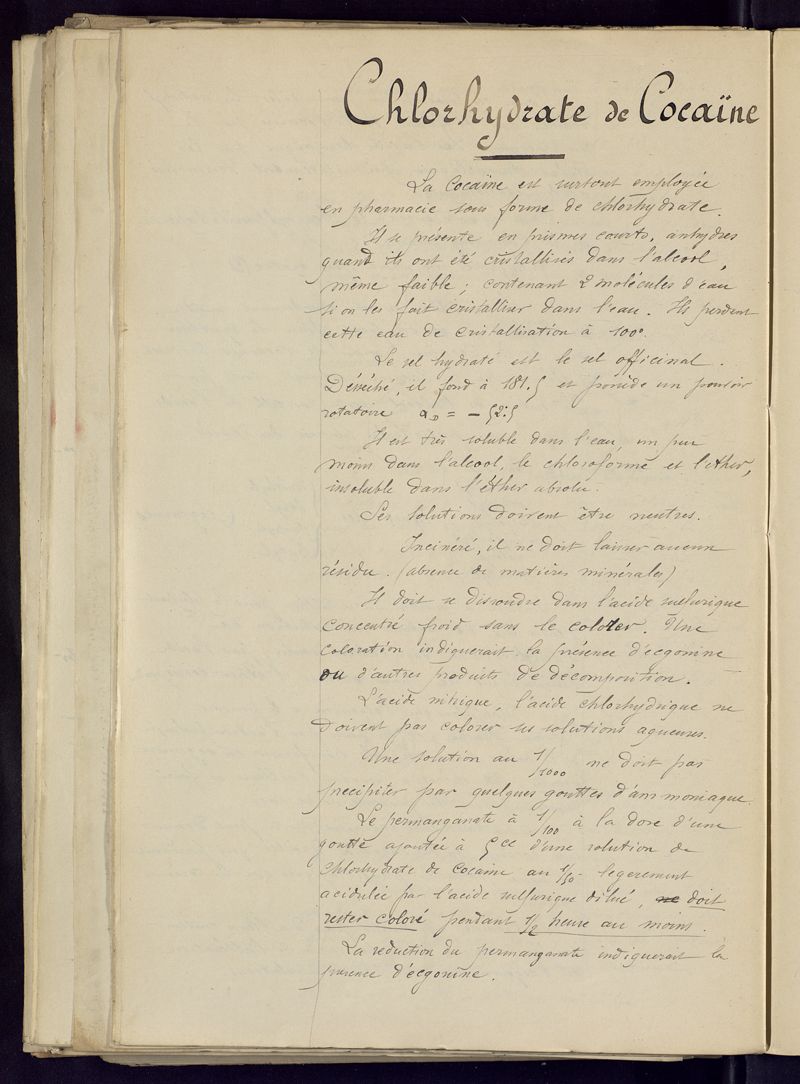 Chlorhydrate de Cocaïne
La Cocaïne est surtout employée
en pharmacie sous forme de chlorhydrate.
Il se présente en prismes courts, anhydres
quand ils ont été cristallisés dans l'alcool,
même faible ; contenant 2 molécules d'eau
si on les fait cristalliser dans l'eau. Ils perdent
cette eau de cristallisation à 100°.
Le sel hydraté est le sel officinal.
Désséché, il fond à 181.5 et possède un pouvoir
rotatoire α_D = - 52°.5
Il est très soluble dans l'eau, un peu
moins dans l'alcool, le chloroforme et l'éther,
insoluble dans l'éther absolu.
Ses solutions doivent être neutres.
Incinéré, il ne doit laisser aucun
résidu. (absence de matières minérales)
Il doit se dissoudre dans l'acide sulfurique
concentré froid sans le colorer. Une
coloration indiquerait la présence d'ecgonine
ou d'autres produits de décomposition.
L'acide nitrique, l'acide chlorhydrique ne
doivent pas colorer ses solutions aqueuses.
Une solution au 1/1000 ne doit pas
precipiter par quelques gouttes d'ammoniaque.
Le permanganate à 1/100 à la dose d'une
goutte ajoutée à 5cc d'une solution de
chlorhydrate de cocaine au 1/50 legerement
acidulée par l'acide sulfurique dilué, ne doit
rester coloré pendant 1/2 heure au moins.
La reduction du permanganate indiquerait la
presence d'écgonine.